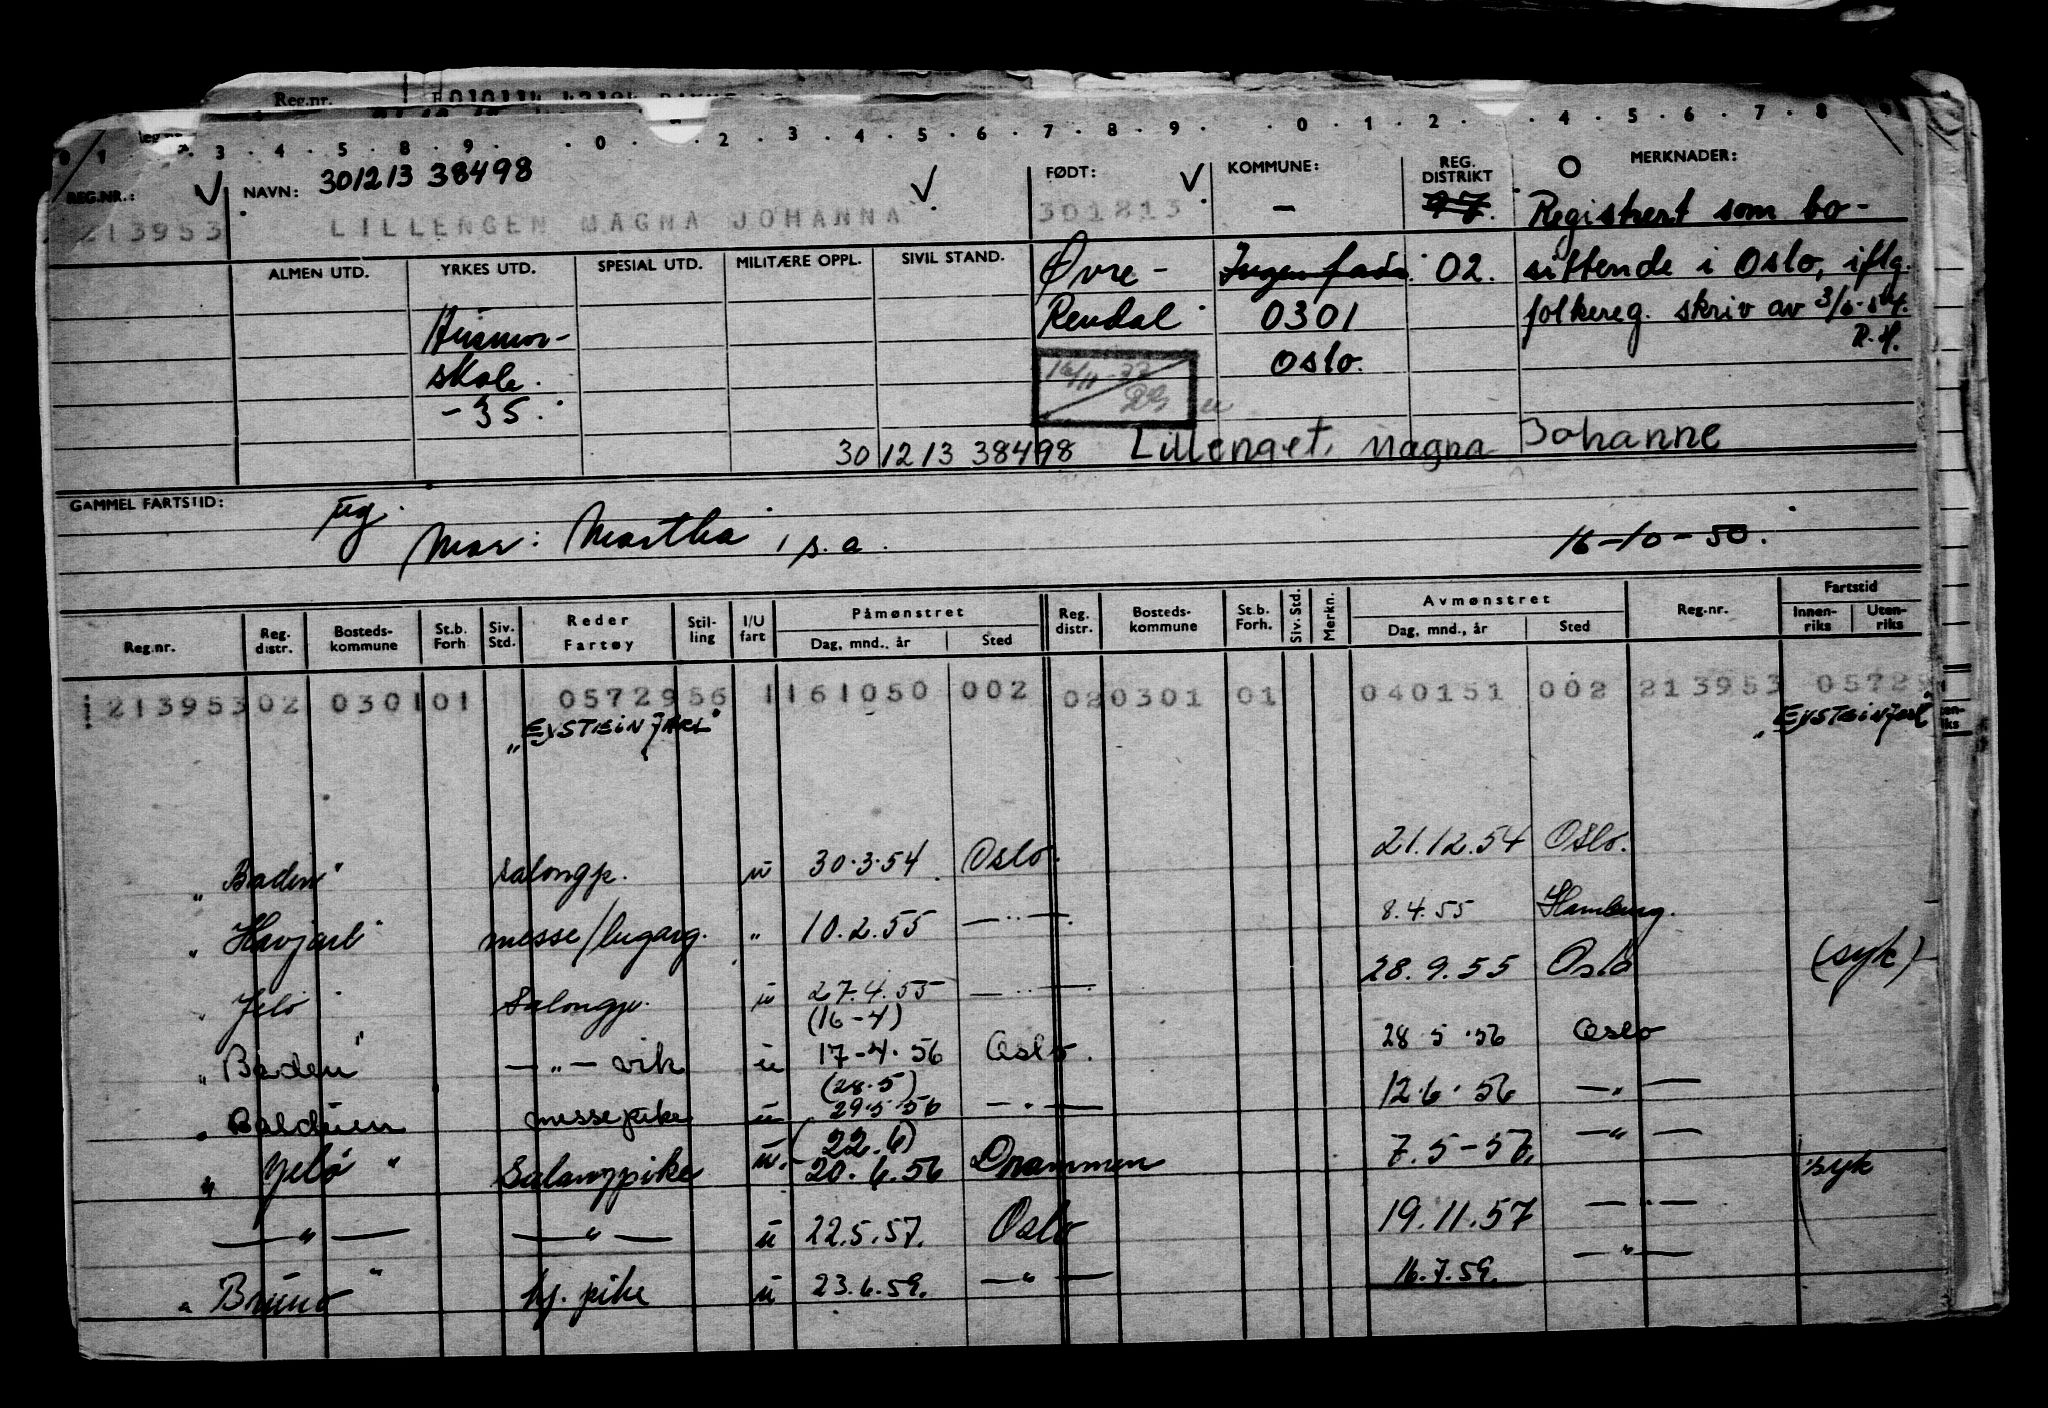 Reg.nr.
0 1 3 . 4 . 5 . 8 . 9 . . 0 . 2 . 3 . 4 . 5 . 6 . 7 . 8 . 9 . . 0 . 1 . 2 . 4 . 5 . 6 . 7 . 8 9
REG.NR.: NAVN: 301213 38498 FØDT: KOMMUNE: REG. DISTRIKT MERKNADER:
213953 LILLENGEN MAGNA JOHANNA 301213 – 97. Registrert som bo-
ALMEN UTD. YRKES UTD. SPESIAL UTD. MILITÆRE OPPL. SIVIL STAND. Øvre- Ingen fada. 02. sittende i Oslo, iflg.
Husmor- Rendal 0301 folkereg. skriv av 3/6-54.
skole. 16/11-77 Oslo. R.H.
-35.
301213 38498 Lillenget, Magna Johanne
GAMMEL FARTSTID: ug.
Mar: Martha, s.a. 16-10-50.
Reg.nr. Reg. distr. Bosteds-kommune St.b. Forh Siv. Std. Reder Fartøy Stil-ling I/U fart Påmønstret Dag, mnd., år Sted Reg. distr. Bosteds-kommune St.b. Forh. Siv. Std. Merkn. Avmønstret Dag, mnd., år Sted Reg.nr. Fartstid Innen-riks Uten-riks
213953 02 0301 01 05729 56 1 161050 002 02 0301 01 040151 002 213953 05729
"EYSTEIN JARL" "EYSTEIN JARL"
"Baden" salongp. u 30.3.54 Oslo. 21.12.54 Oslo.
"Havjarl" messe/lugarg. " 10.2.55 — " — 8.4.55 Hamburg.
"Jelø" Salongp. u 27.4.55 — " — 28.9.55 Oslo (syk)
(16-4)
"Baden" — " — vik u 17-4.56 Oslo. 28.5.56 Oslo
(28.5)
"Balduin messepike u 29.5.56 — " — 12.6.56 — " —
(22.6)
"Jelø" Salongpike u. 20.6.56 Drammen 7.5-57. — " — syk
— " — — " — u 22.5.57. Oslo 19.11.57 — " —
"Bruno" hj. pike u 23.6.59. — " — 16.7.59. — " —